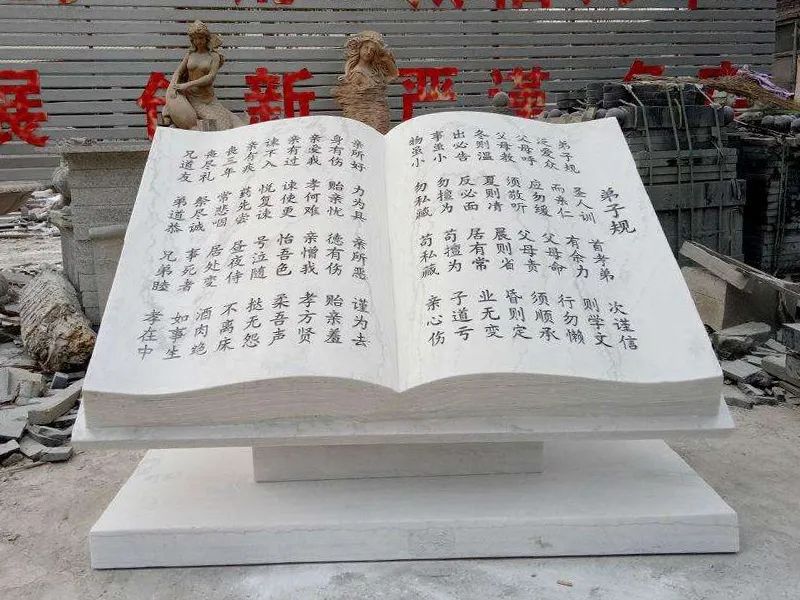 弟子规
弟子规 圣人训 首孝弟 次谨信
泛爱众 而亲仁 有余力 则学文
父母呼 应勿缓 父母命 行勿懒
父母教 须敬听 父母责 须顺承
冬则温 夏则凊 晨则省 昏则定
出必告 反必面 居有常 业无变
事虽小 勿擅为 苟擅为 子道亏
物虽小 勿私藏 苟私藏 亲心伤
亲所好 力为具 亲所恶 谨为去
身有伤 贻亲忧 德有伤 贻亲羞
亲爱我 孝何难 亲憎我 孝方贤
亲有过 谏使更 怡吾色 柔吾声
谏不入 悦复谏 号泣随 挞无怨
亲有疾 药先尝 昼夜侍 不离床
丧三年 常悲咽 居处变 酒肉绝
丧尽礼 祭尽诚 事死者 如事生
兄道友 弟道恭 兄弟睦 孝在中
展 创新 严谨